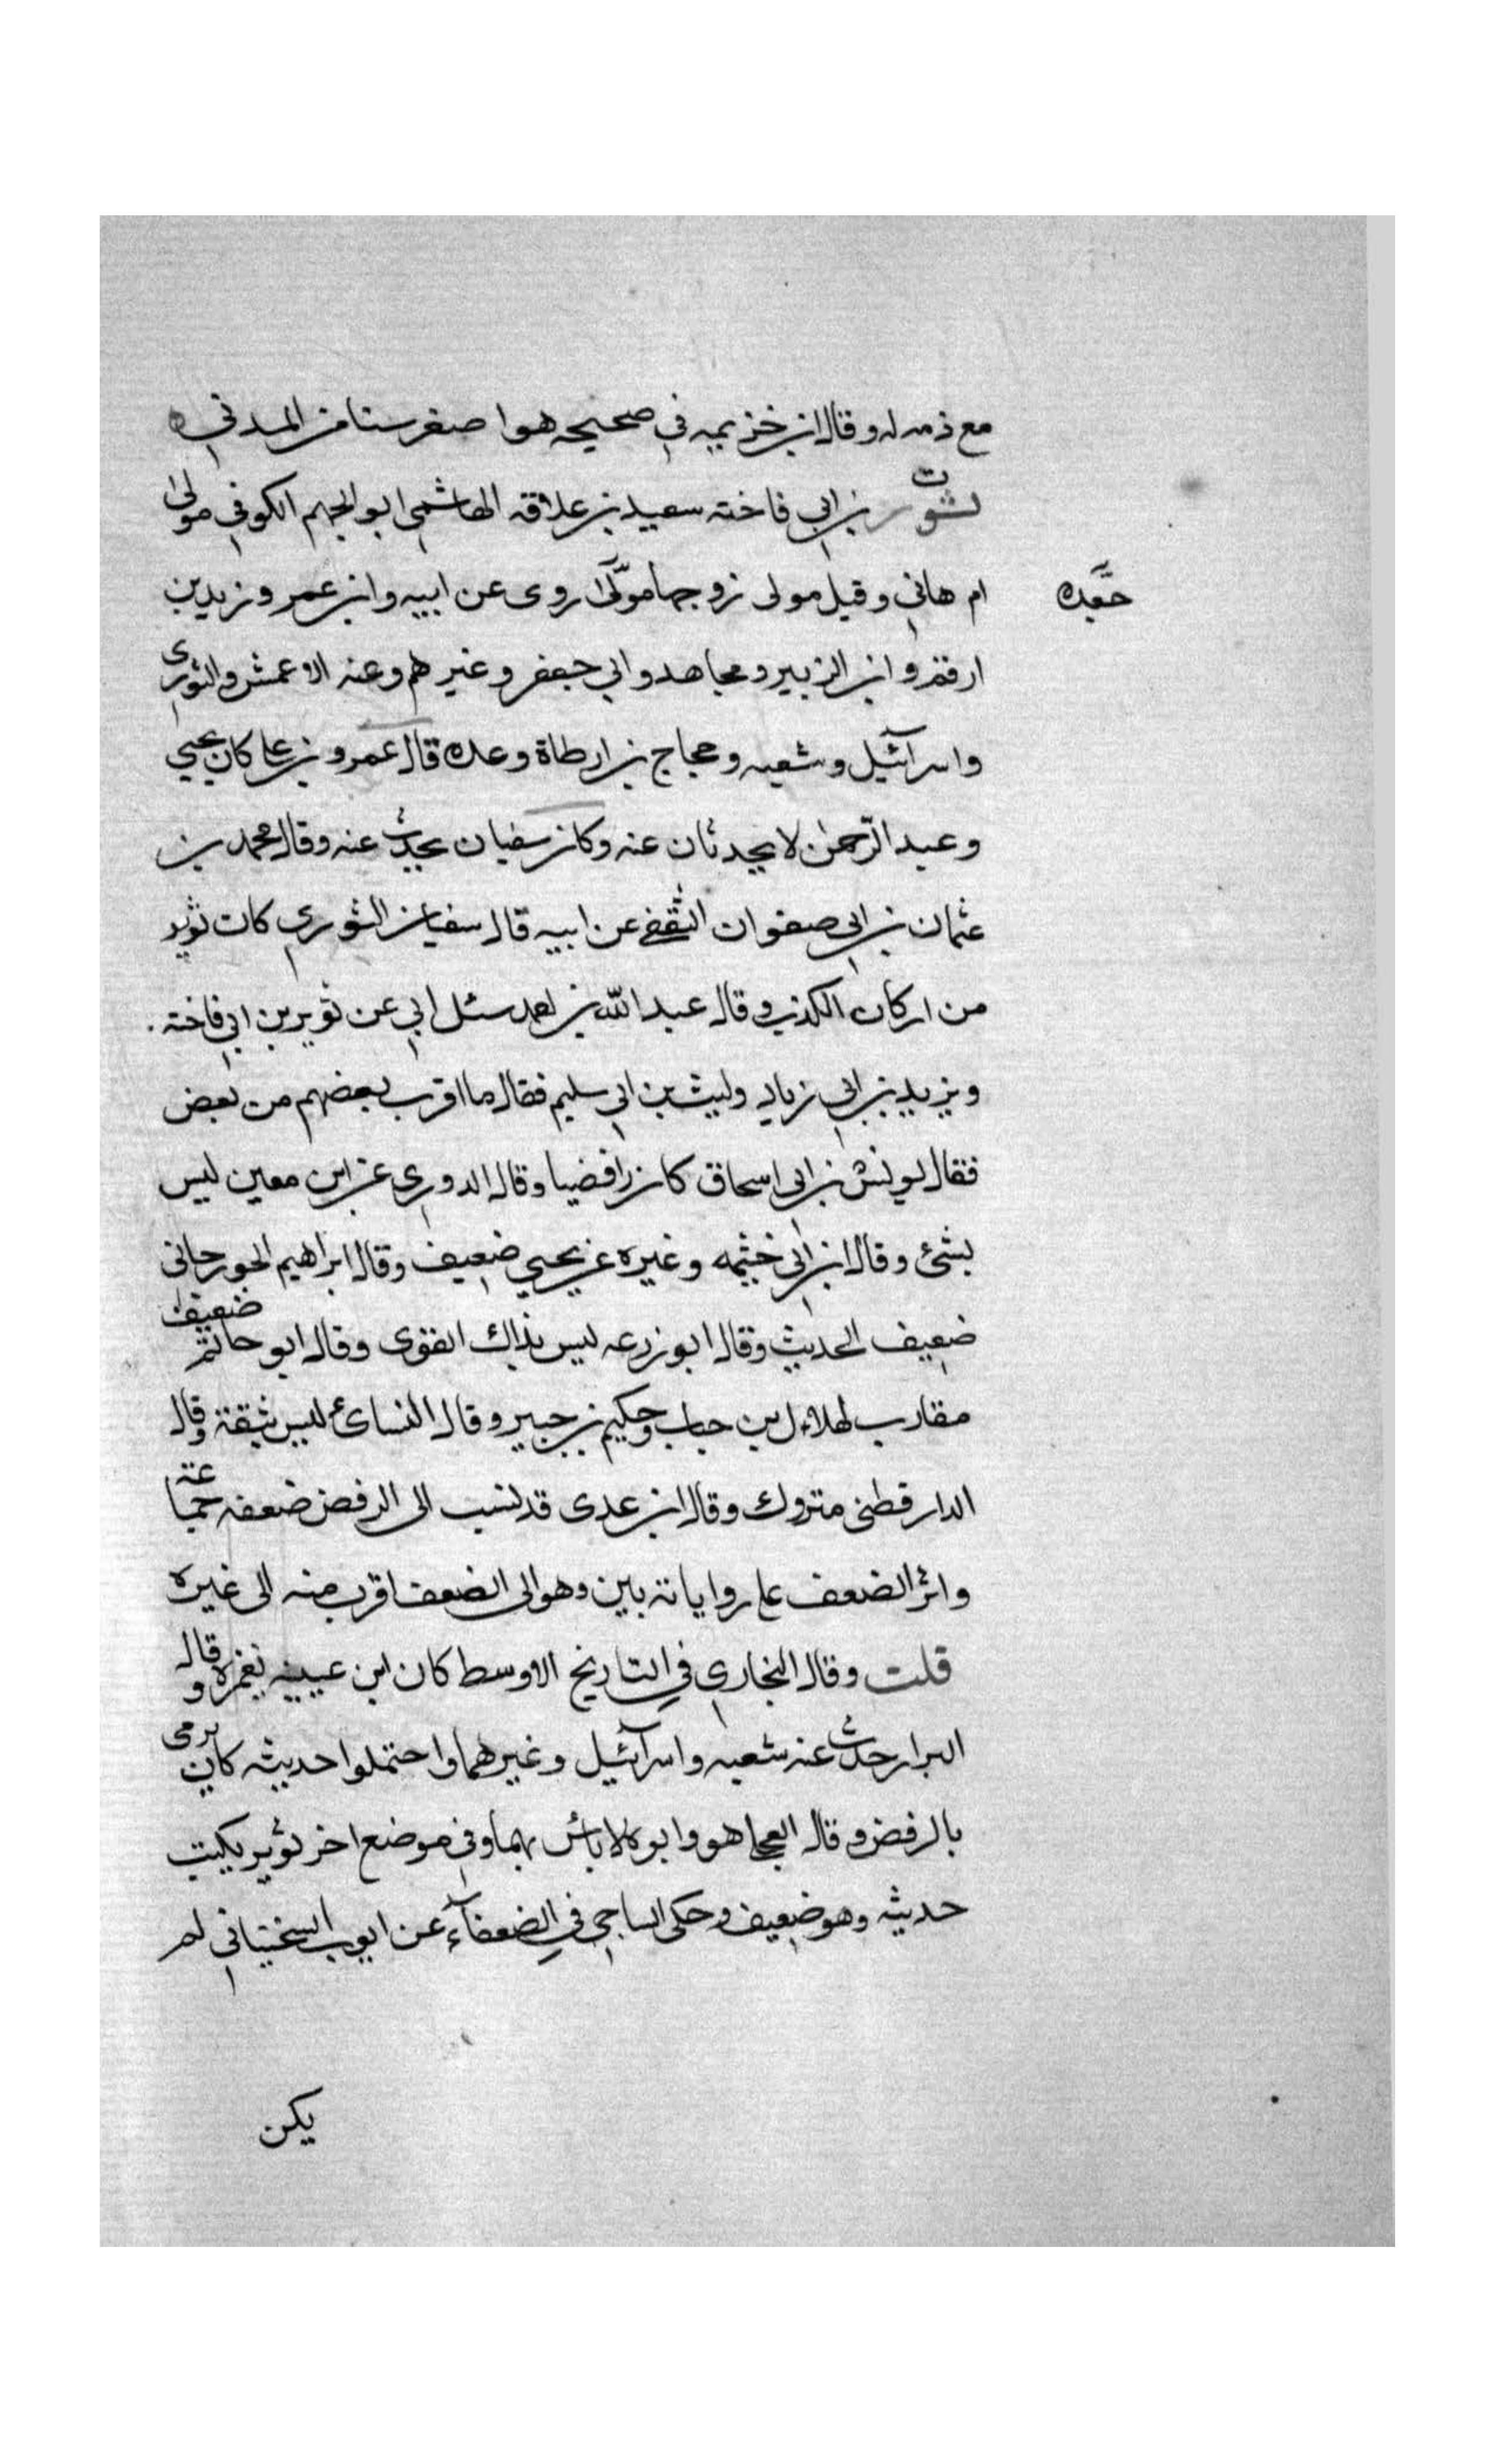 مع ذمه له وقال ابن خزيمه في صحيحه هو اصغر سنا من المدني ه
ت
ثوير بن ابي فاخته سعيد بن علاقه الهاشمي ابو الجهم الكوفي مولى
ام هاني وقيل مولى زوجها روى عن ابيه وابن عمر وزيد بن
جعده
ارقم وابن الزبير ومجاهد وابي جعفر وغيرهم وعنه الاعمش والثوري
واسرآئيل وشعبه وحجاج بن ارطاة وعده قال عمرو بن علي كان يحيي
وعبد الرّحمٰن لا يحدثان عنه وكان سفيان يحدث عنه وقال محمد بن
عثمان بن ابي صفوان الثقفي عن ابيه قال سفيان الثوري كان ثوير
من اركان الكذب وقال عبد الله بن احمد سئل ابي عن ثوير بن ابي فاخته
ويزيد بن ابي زياد وليث بن ابي سليم فقال ما اقرب بعضهم من بعض
فقال يونس بن ابي اسحاق كان رافضيا وقال الدوري عن ابن معين ليس
بشئ وقال ابن ابي خيثمه وغيره عن يحيي ضعيف وقال ابراهيم الجوزجاني
ضعيف الحديث وقال ابو زرعه ليس بذاك القوى وقال ابو حاتم ضعيف
مقارب لهلال بن خباب وحكيم بن جبير وقال النسائ ليس بثقة وقال
الدارقطنى متروك وقال ابن عدى قد نسب الى الرفض ضعفه جماعة
واثر الضعف على رواياته بين وهو الى الضعف اقرب منه الى غيره
قلت وقال البخاري في التاريخ الاوسط كان ابن عيينه يغمزه وقال
البزار حدث عنه شعبه واسرآئيل وغيرهما واحتملوا حديثه كان يرمى
بالرفض وقال العجلي هو وابوه لا باس بهما وفي موضع اخر ثوير يكتب
حديثه وهو ضعيف وحكى الساجي في الضعفآء عن ايوب السختياني لم
يكن